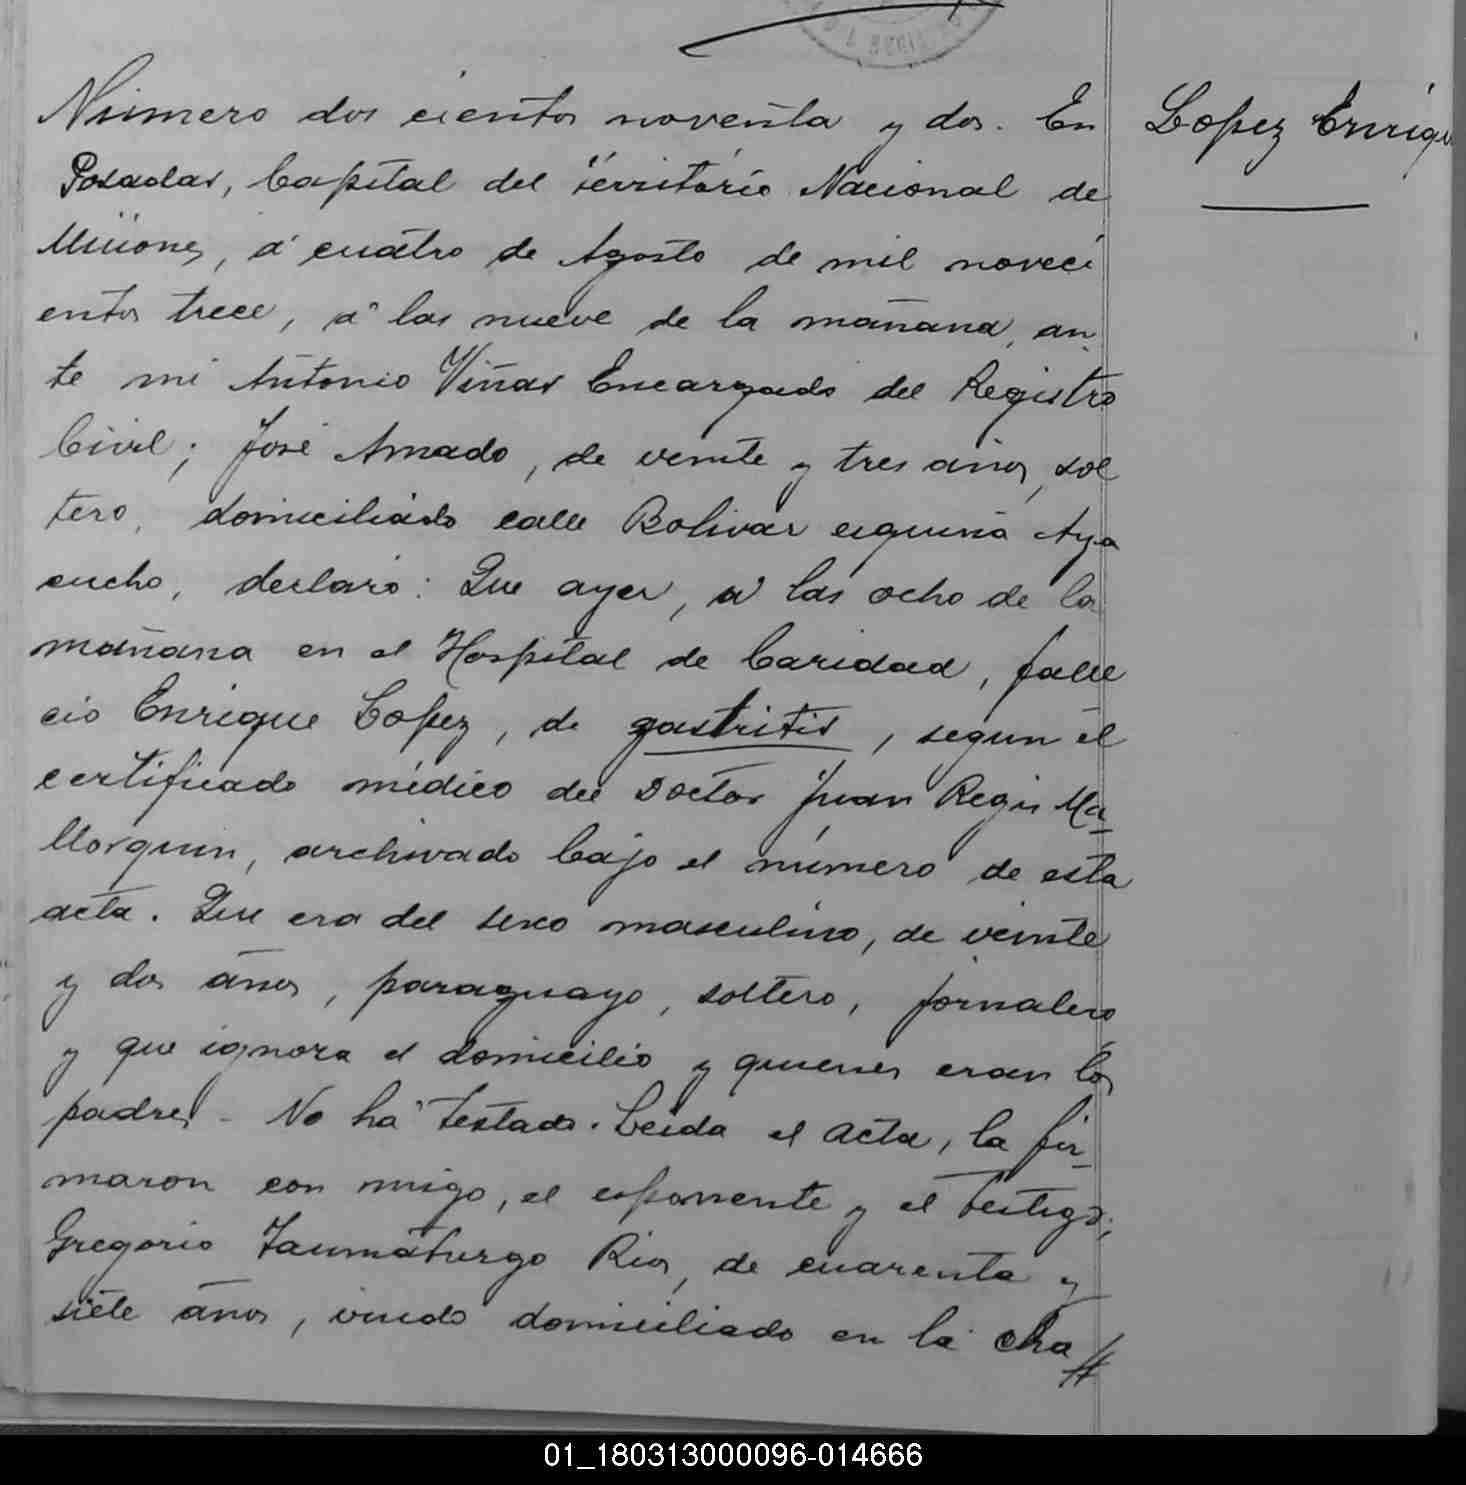 Número dos cientos noventa y dos. En
Lopez Enriqu
Posadas, Capital del territorio Nacional de
Misiones, á cuatro de Agosto de mil noveci
entos trece, á las nueve de la mañana, an
te mi Antonio Viñas Encargado del Registro
Civil; José Amado, de veinte y tres años, sol
tero, domiciliado calle Bolivar esquina Aya
cucho, declaró: Que ayer, á las ocho de la
mañana en el Hospital de Caridad, falle
ció Enrique Lopez, de gastritis, segun el
certificado médico del Doctor Juan Regis Ma-
llorquin, archivado bajo el número de esta
acta. Que era del sexo masculino, de veinte
y dos años, paraguayo, soltero, jornalero
y que ignora el domicilio y quienes eran los
padres. No ha testado. Leida el acta, la fir-
maron con migo, el esponente y el testigo;
Gregorio Taumaturgo Rios, de cuarenta y
siete años, viudo domiciliado en la cha//
01_180313000096-014666